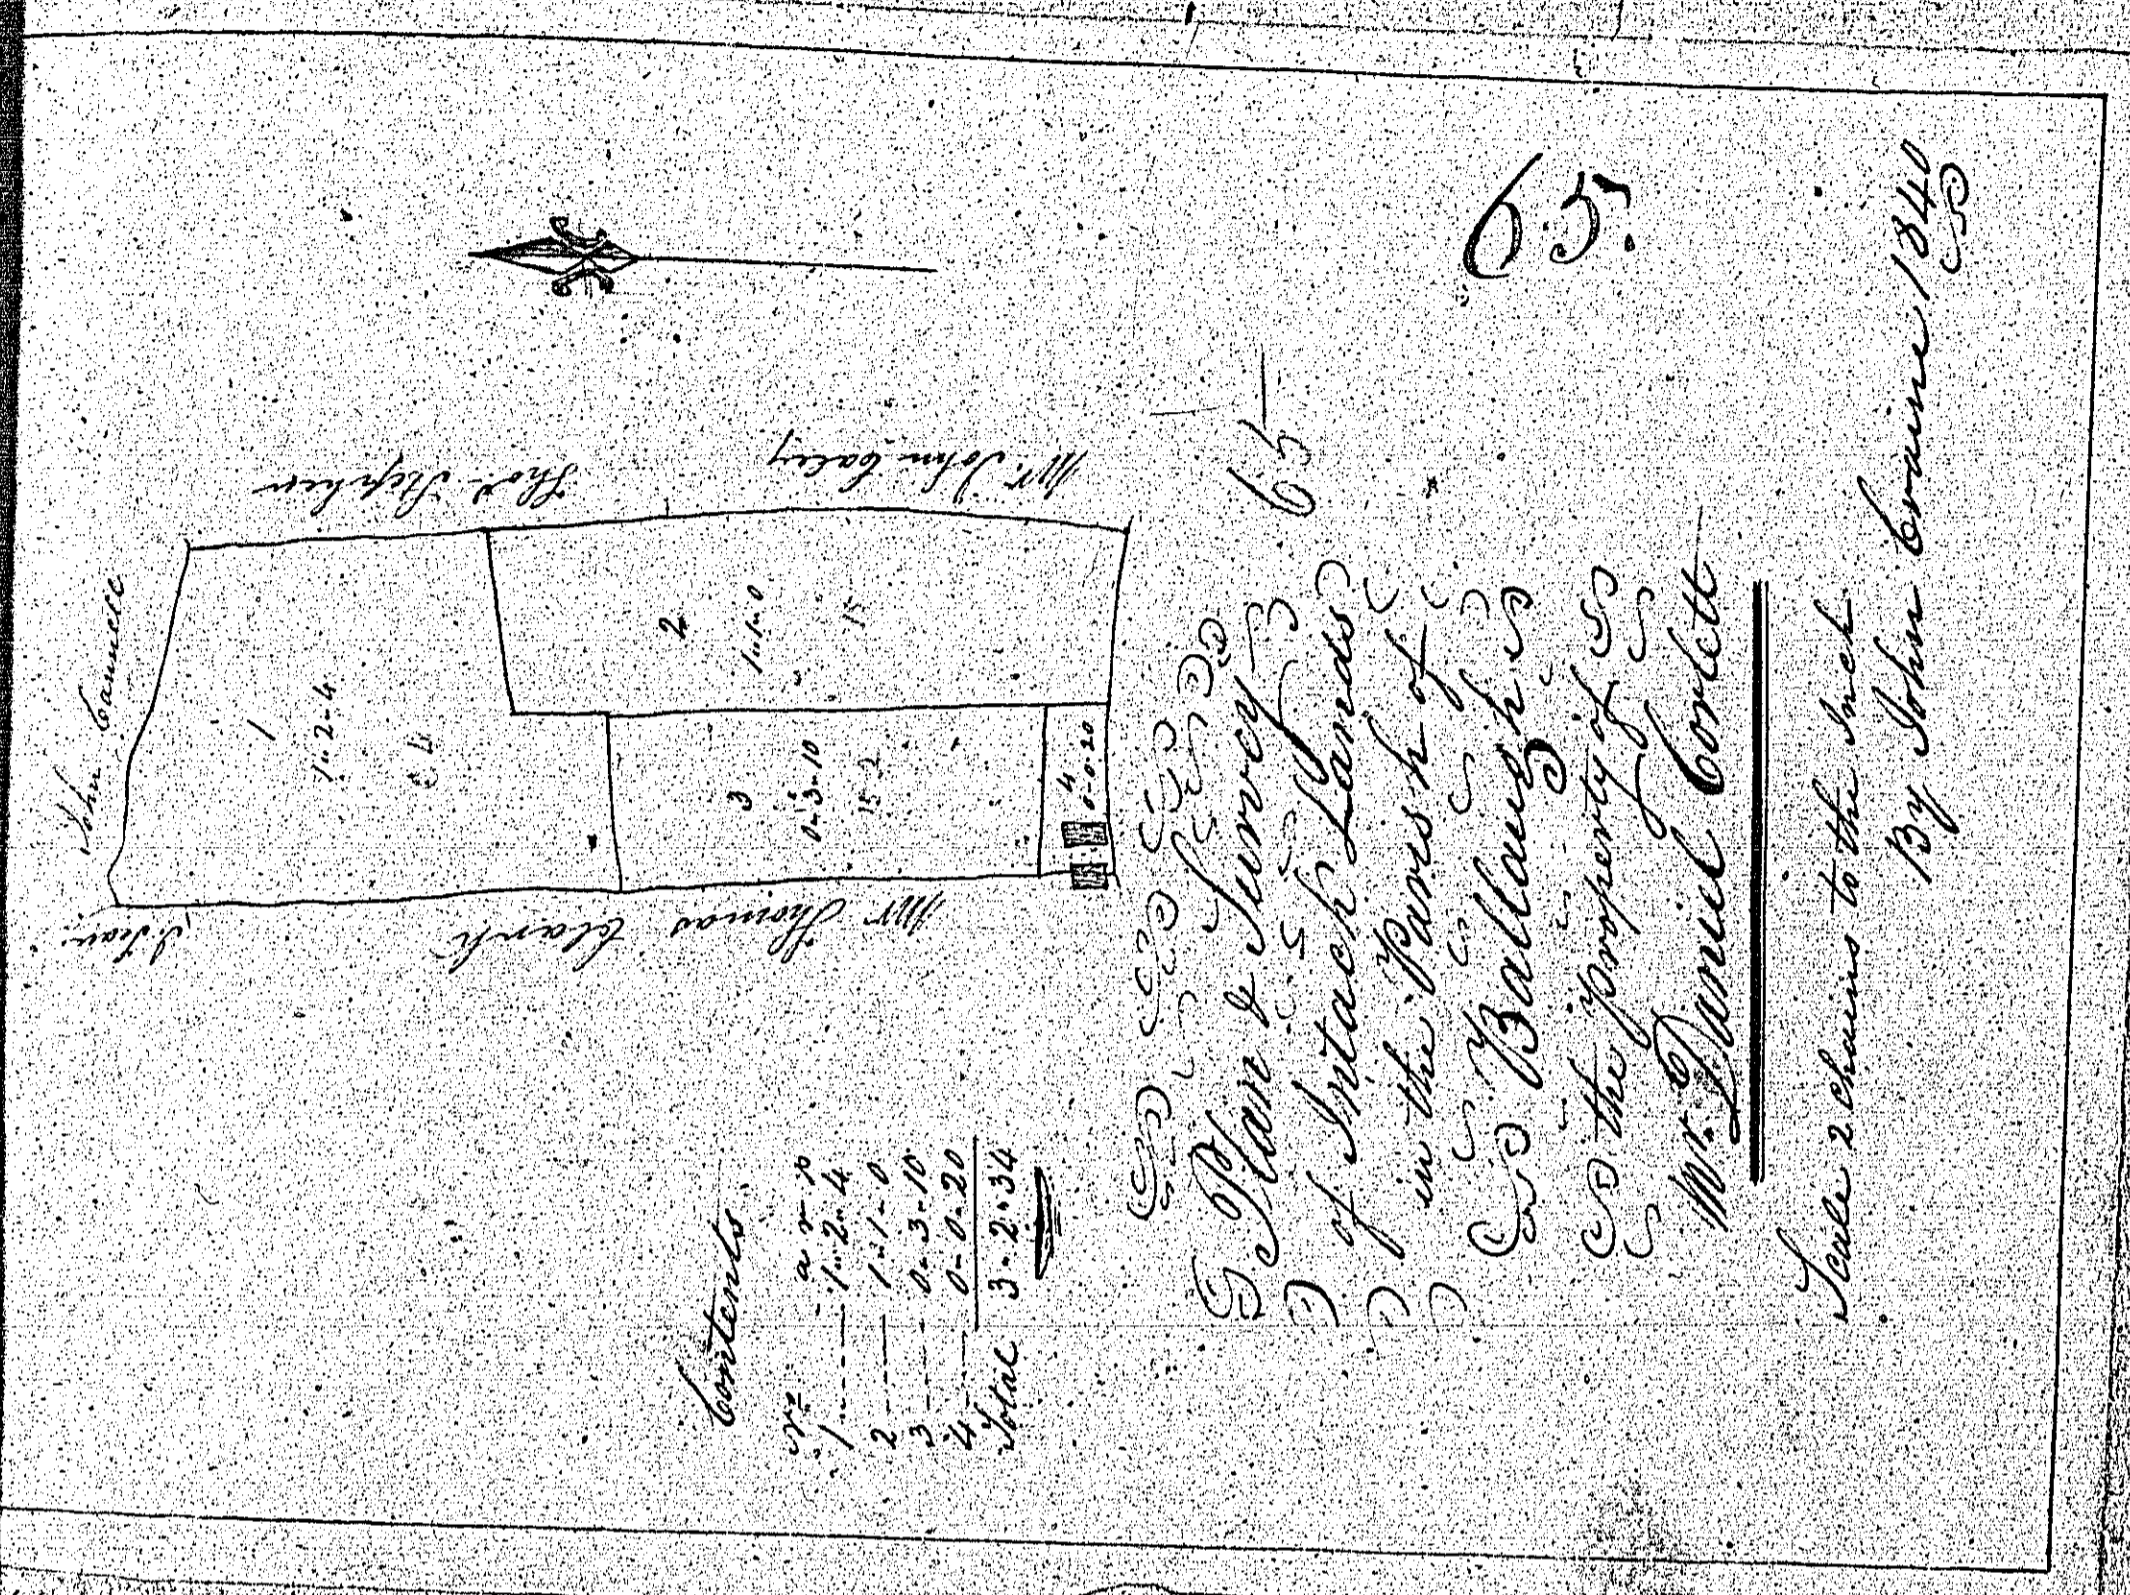 John Cannell
Thos. Stephen
Mr. John Caley
Mr Thomas Clark
1
1-2-4
2
1-1-0
15
3
0-3-10
15 2
4
0-0-20
65
65.
Contents
No. a r p
1 1-2-4
2 1-1-0
3 0-3-10
4 0-0-20
Total 3-2-34
Plan & Survey
of Intack Lands
in the Parish of
Ballaugh
the Property of
Mr. Daniel Corlett
Scale 2 chains to the Inch
By John Craine 1840